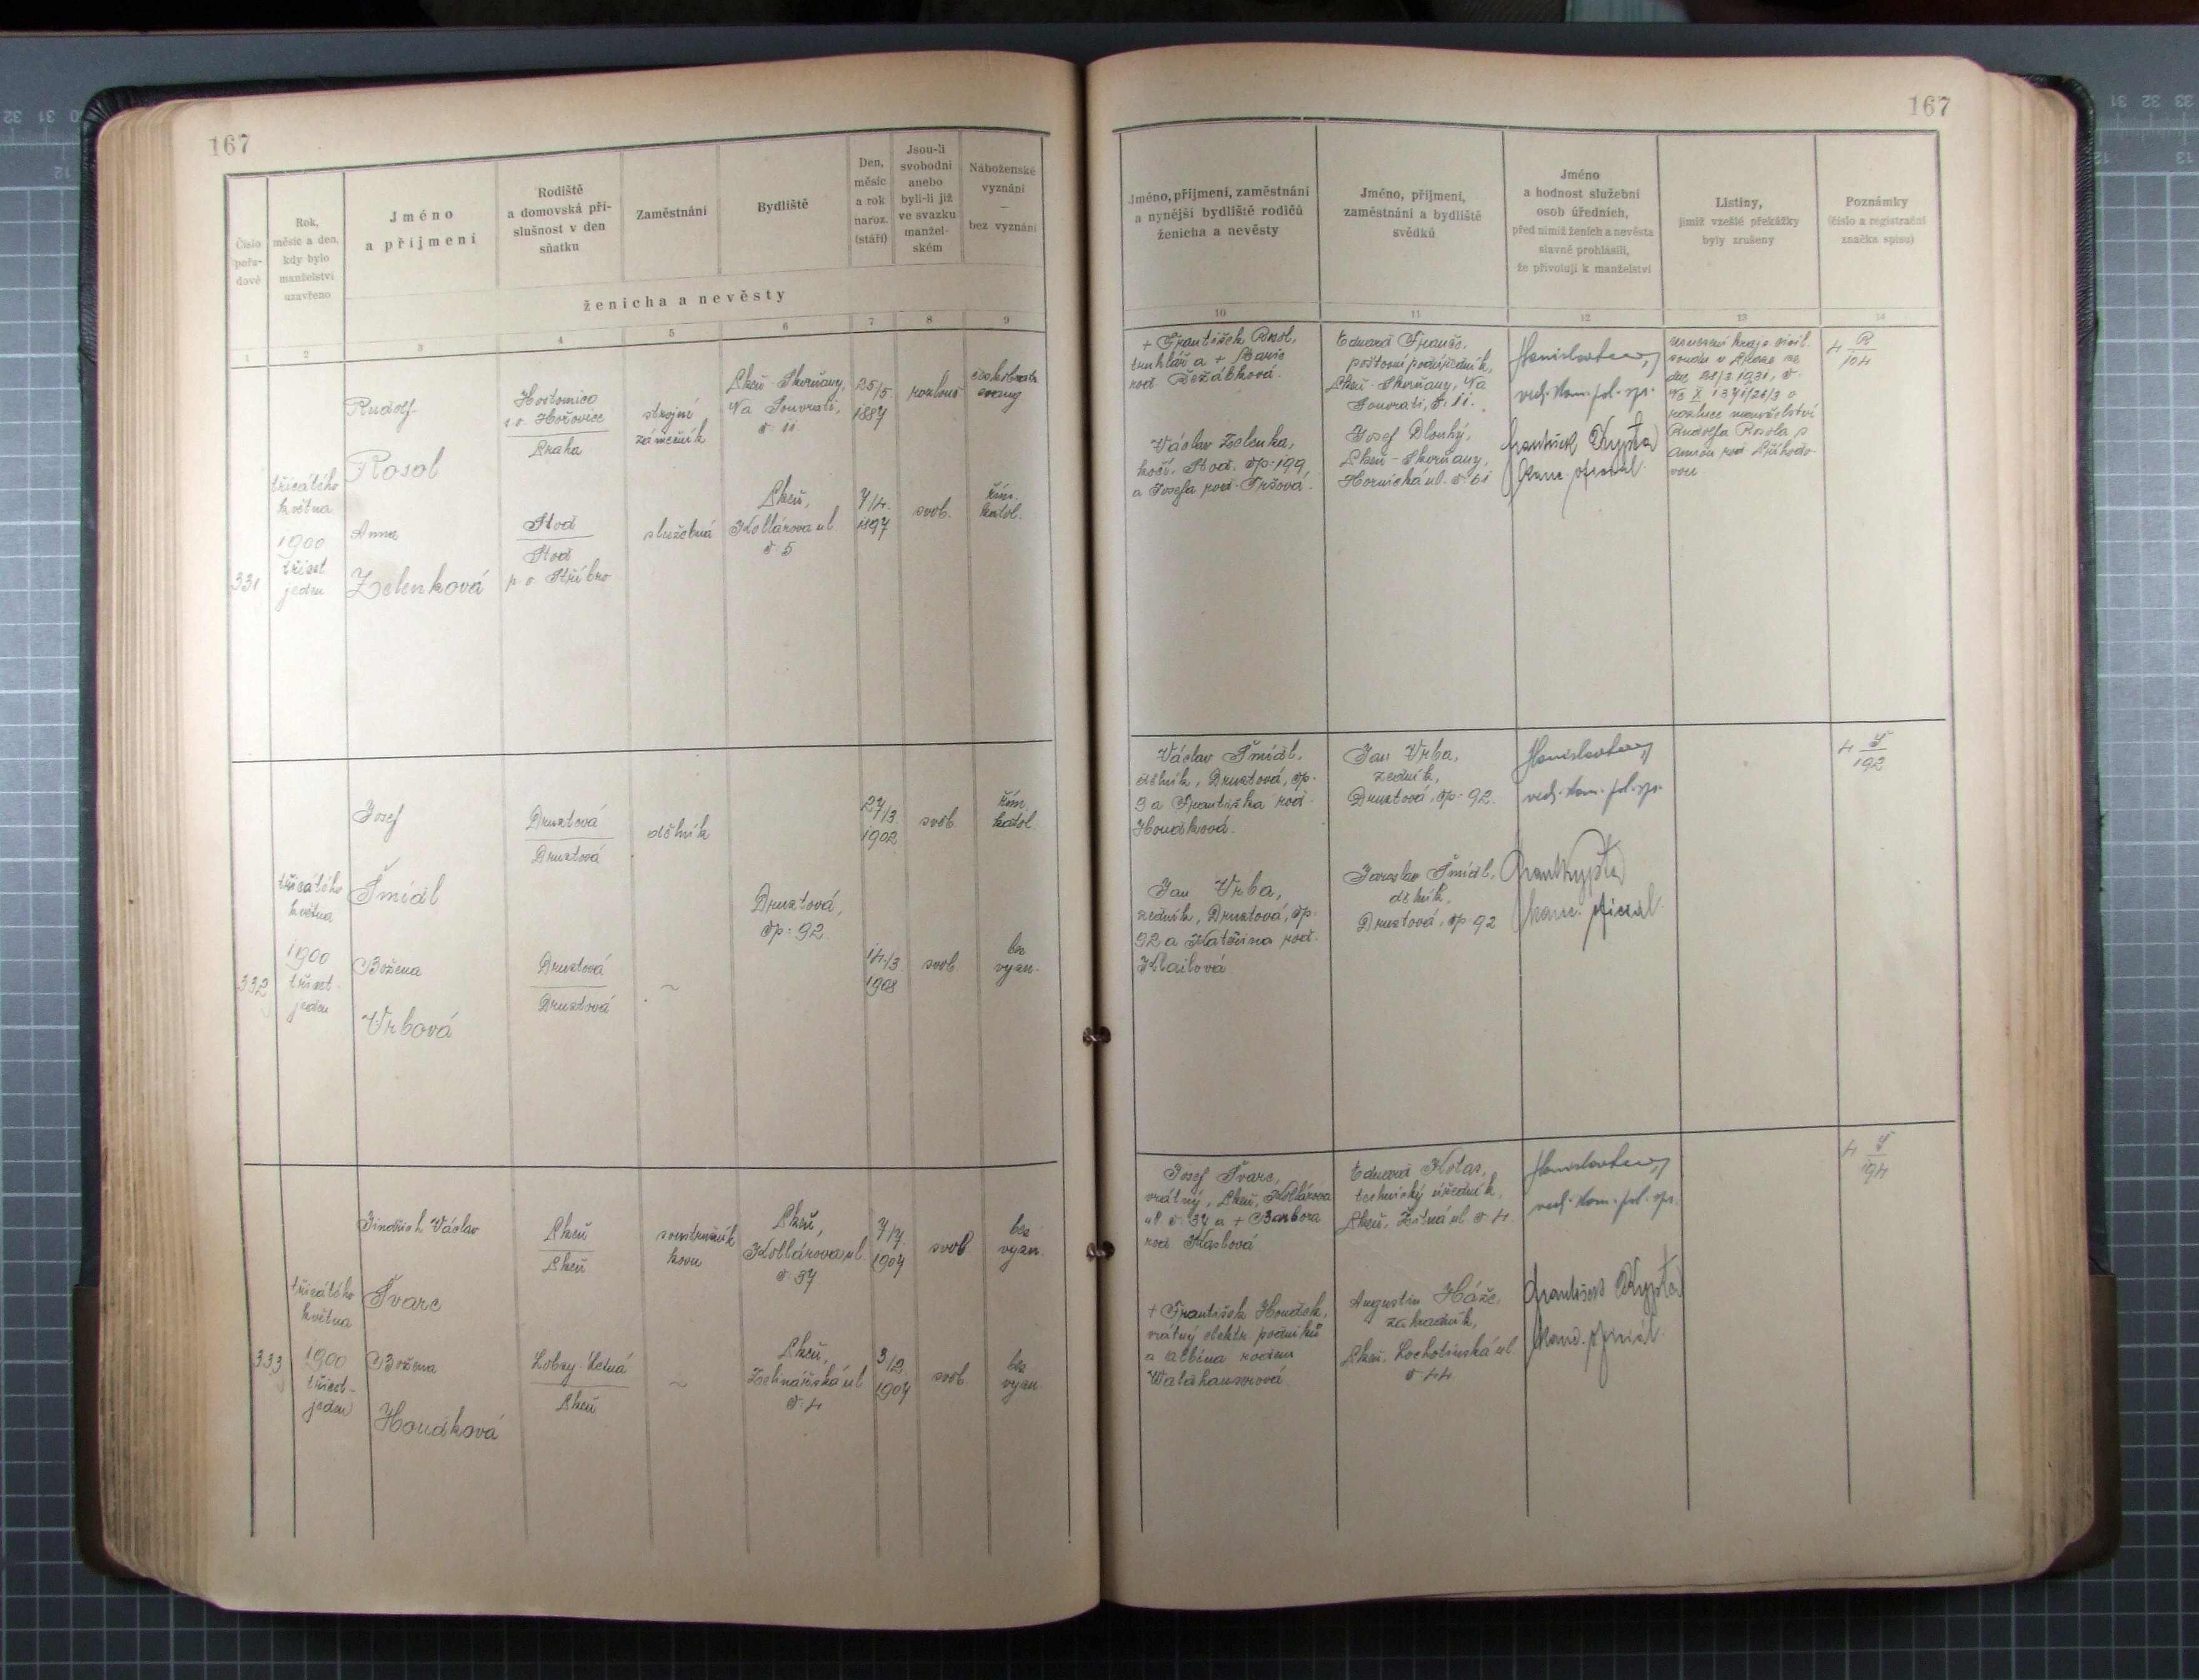 167
Číslo pořadové
Rok, měsíc a den, kdy bylo manželství uzavřeno
Jméno a příjmení
Rodiště a domovská příslušnost v den sňatku
Zaměstnání
Bydliště
Den, měsíc a rok naroz. (stáří)
Jsou-li svobodni anebo byli-li již ve svazku manželském
Náboženské vyznání — bez vyznání
ženicha a nevěsty
1 2 3 4 5 6 7 8 9
331
třicátého
května
1900
třicet
jeden
Rudolf
Rosol
Hostomice
s. o. Hořovice
Praha
strojní
zámečník
Plzeň-Skvrňany,
Na Souvrati,
č. 11
25/5.
1887
rozlouč.
českobratr.
evang.
Anna
Zelenková
Stod
Stod
p. o. Stříbro
služebná
Plzeň,
Kollárova ul
č. 5
7/4.
1897
svob.
řím.
katol.
332
třicátého
května
1900
třicet
jeden
Josef
Šmídl
Druztová
Druztová
dělník
Druztová,
čp. 92.
27/3.
1902
svob.
řím.
katol.
Božena
Vrbová
Druztová
Druztová
~
14/3.
1908
svob.
bez
vyzn.
333
třicátého
května
1900
třicet-
jeden
Jindřich Václav
Švarc
Plzeň
Plzeň
soustružník
kovu
Plzeň,
Kollárova ul
č. 37
7/7.
1907
svob.
bez
vyzn.
Božena
Houdková
Lobzy-Letná
Plzeň
~
Plzeň,
Zelinářská ul
č. 4
3/2.
1907
svob.
bez
vyzn.
167
Jméno, příjmení, zaměstnání a nynější bydliště rodičů ženicha a nevěsty
Jméno, příjmení, zaměstnání a bydliště svědků
Jméno a hodnost služební osob úředních, před nimiž ženich a nevěsta slavně prohlásili, že přivolují k manželství
Listiny, jimiž vzešlé překážky byly zrušeny
Poznámky (číslo a registrační značka spisu)
10 11 12 13 14
+ František Rosol,
truhlář a + Marie
roz. Řežábková.
Václav Zelenka,
kočí, Stod, čp. 199,
a Josefa roz. Tršová.
Eduard Franče,
poštovní podúředník,
Plzeň-Skvrňany, Na
Souvrati, č. 11.
Josef Dlouhý,
Plzeň-Skvrňany,
Hornická ul. č. 61
ved. kom. pol. sp.
František Krypta
kanc. oficiál.
usnesení kraj. civil.
soudu v Praze ze
o
rozluce manželství
Rudolfa Rosola s
Annou roz. Příhodo-
vou
4 R
104
Václav Šmídl,
dělník, Druztová, čp.
9 a Františka roz.
Houdková.
Jan Vrba,
zedník, Druztová, čp.
92 a Kateřina roz.
Klailová
Jan Vrba,
zedník,
Druztová, čp. 92.
Jaroslav Šmídl,
dělník,
Druztová, čp 92
ved. kom. pol. sp.
Frant Krypta
kanc. oficiál.
4 Š
192
Josef Švarc,
vrátný, Plzeň, Kollárova
ul. č. 37 a + Barbora
roz. Kaslová
+ František Houdek,
vrátný elektr. podniků
a Albína rozen.
Waldhauserová
Eduard Kotas,
technický úředník,
Plzeň, Žitná ul. č. 4.
Augustin Háže,
zahradník,
Plzeň, Lochotínská ul
č. 44
ved. kom. pol. sp.
František Krypta
kanc. oficiál.
4 Š
194